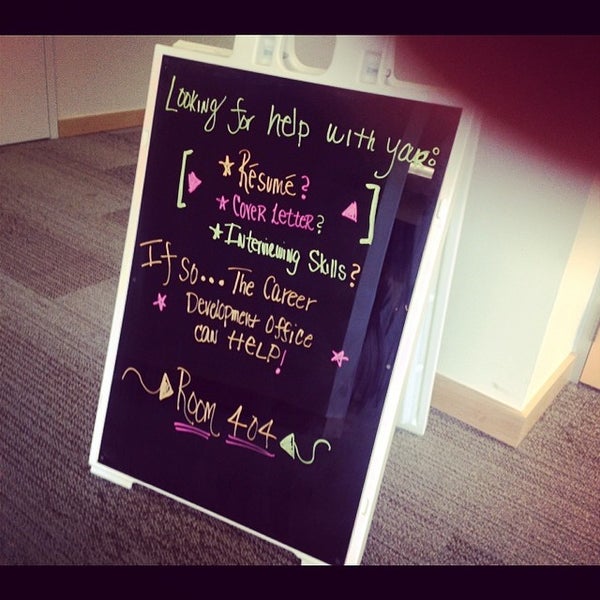 Looking for help with your:
* Résumé?
* Cover Letter?
* Interviewing Skills?
If so... The Career
Development Office
can HELP!
Room 404